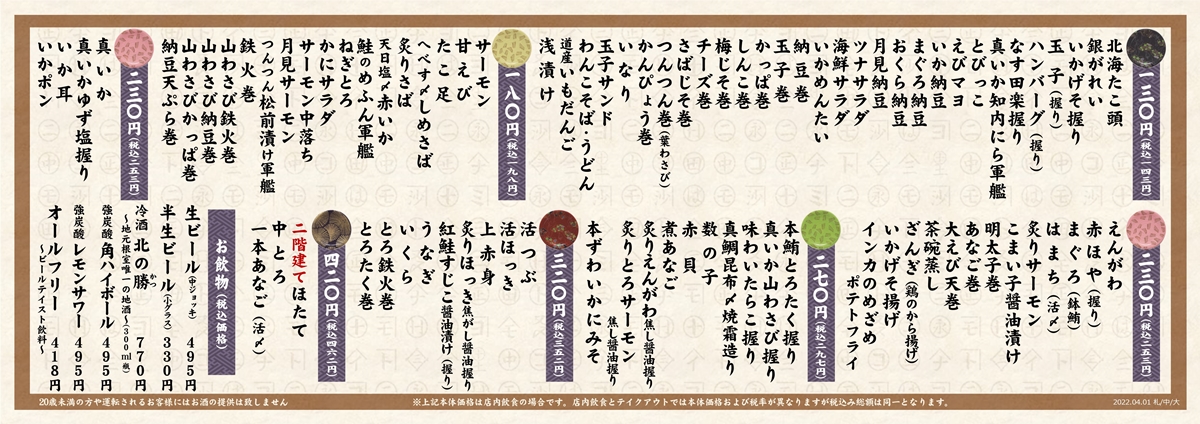 一三〇円(税込一四三円)
北海たこ頭
銀がれい
いかげそ握り
玉子(握り)
ハンバーグ(握り)
なす田楽握り
真いか知内にら軍艦
とびっこ
えびマヨ
いか納豆
まぐろ納豆
おくら納豆
月見納豆
ツナサラダ
海鮮サラダ
いかめんたい
納豆巻
玉子巻
かっぱ巻
しんこ巻
梅じそ巻
チーズ巻
さばじそ巻
つんつん巻(葉わさび)
かんぴょう巻
いなり
玉子サンド
わんこそば・うどん
道産いもだんご
浅漬け
一八〇円(税込一九八円)
サーモン
甘えび
たこ足
へべす〆しめさば
炙りさば
天日塩〆赤いか
鮭のめふん軍艦
ねぎとろ
かにサラダ
サーモン中落ち
月見サーモン
つんつん松前漬け軍艦
鉄火巻
山わさび鉄火巻
山わさび納豆巻
山わさびかっぱ巻
納豆天ぷら巻
二三〇円(税込二五三円)
真いか
真いかゆず塩握り
いか耳
いかポン
二三〇円(税込二五三円)
えんがわ
赤ほや(握り)
まぐろ(鉢鮪)
はまち(活〆)
炙りサーモン
こまい子醤油漬け
明太子巻
あなご巻
大えび天巻
茶碗蒸し
ざんぎ(鶏のから揚げ)
いかげそ揚げ
インカのめざめ
ポテトフライ
二七〇円(税込二九七円)
本鮪とろたく握り
真いか山わさび握り
味わいたらこ握り
真鯛昆布〆焼霜造り
数の子
赤貝
煮あなご
炙りえんがわ焦し醤油握り
炙りとろサーモン
焦し醤油握り
本ずわいかにみそ
三二〇円(税込三五二円)
活つぶ
活ほっき
上赤身
炙りほっき焦がし醤油握り
紅鮭すじこ醤油漬け(握り)
うなぎ
いくら
とろ鉄火巻
とろたく巻
四二〇円(税込四六二円)
二階建てほたて
中とろ
一本あなご(活〆)
お飲物(税込価格)
生ビール(中ジョッキ) 495円
半生ビール(小グラス) 330円
冷酒 北の勝 770円
かつ
〜地元根室唯一の地酒〜(300ml瓶)
強炭酸 角ハイボール 495円
強炭酸 レモンサワー 495円
オールフリー 418円
〜ビールテイスト飲料〜
20歳未満の方や運転されるお客様にはお酒の提供は致しません
※上記本体価格は店内飲食の場合です。店内飲食とテイクアウトでは本体価格および税率が異なりますが税込み総額は同一となります。
2022.04.01 札/中/大